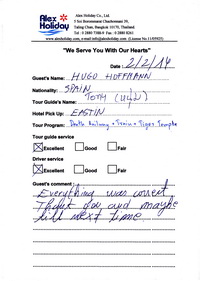 Alex Holiday
Alex Holiday Co., Ltd.
5 Soi Boromaratchachonnanee 39,
Taling Chan, Bangkok 10170, Thailand.
www.alexholiday.com, e-mail:info@alexholiday.com
"We Serve You With Our Hearts"
Date : 2/2/14
Guest's Name: HUGO HOFFMANN
Nationality: SPAIN
Tour Guide's Name: TOTY
Hotel Pick Up: EASTIN
Tour Program: Death Railway + Train + Tiger Temple
Tour guide service
Excellent Good Fair
Driver service
Excellent Good Fair
Guest's comment :
Everything was correct
Thank you and maybe
till next time